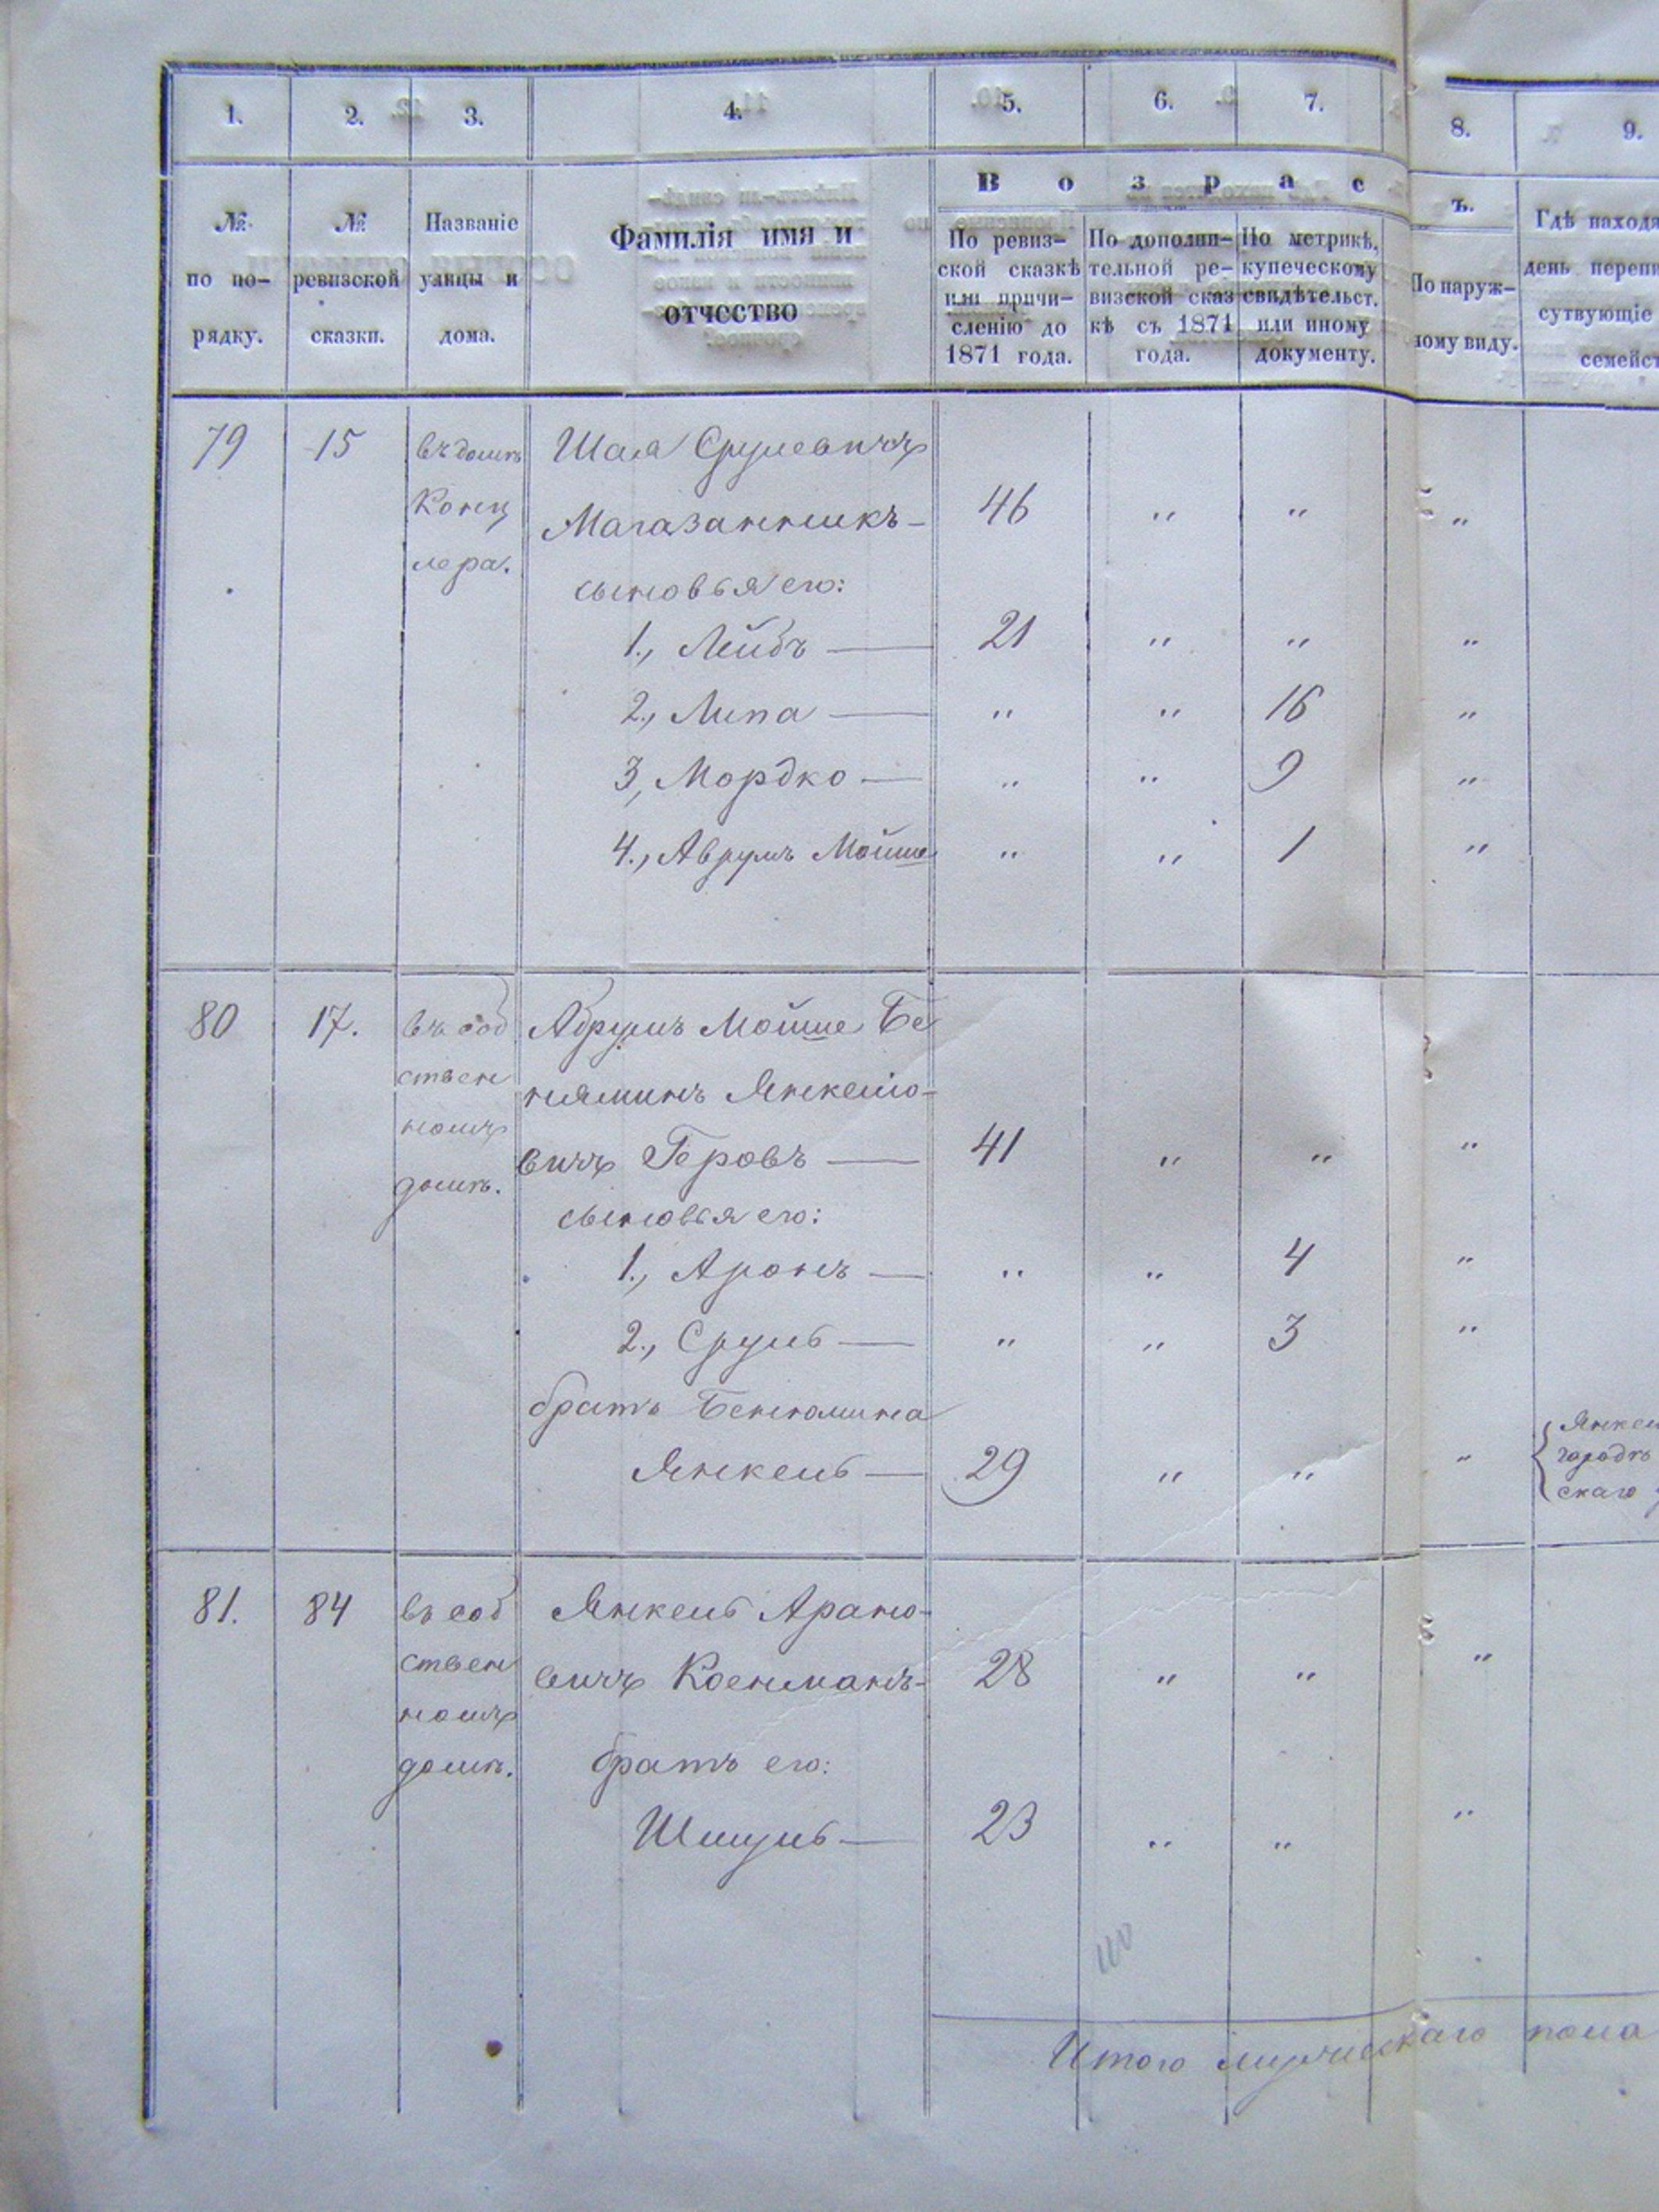 1. 2. 3. 4. 5. 6. 7. 8. 9.
В о з р а с
ъ.
№ по по- рядку.
№ ревизской сказки.
Названіе улицы и дома.
Фамилія имя и отчество
По ревиз- ской сказкѣ или причи- сленію до 1871 года.
По дополни- тельной ре- визской сказ кѣ съ 1871 года.
По метрикѣ, купеческому свидѣтельст. или иному документу.
По наруж- ному виду.
Гдѣ находя
день перепи
сутвующіе
семейст
79 15 въ домѣ Шая Срулевичъ
Конц Магазанникъ- 46 " " "
лера.
сыновья его:
1., Лейбъ — 21 " " "
2., Липа — " " 16 "
3, Мордко — " " 9 "
4., Аврумъ Мойше " " 1 "
80 17. въ соб Абрумъ Мойше Бе
ствен ніяминъ Янкеліо-
номъ вичъ Геровъ — 41 " " "
домѣ. сыновья его:
1., Аронъ — " " 4 "
2., Сруль — " " 3 "
братъ Беніомина
Янкель — 29 " " "
Янкел
городѣ
скаго
81. 84 въ соб Янкель Арано-
ствен вичъ Коенманъ- 28 " " "
номъ
домѣ. братъ его:
Шмуль — 23 " " "
Итого мужескаго пола